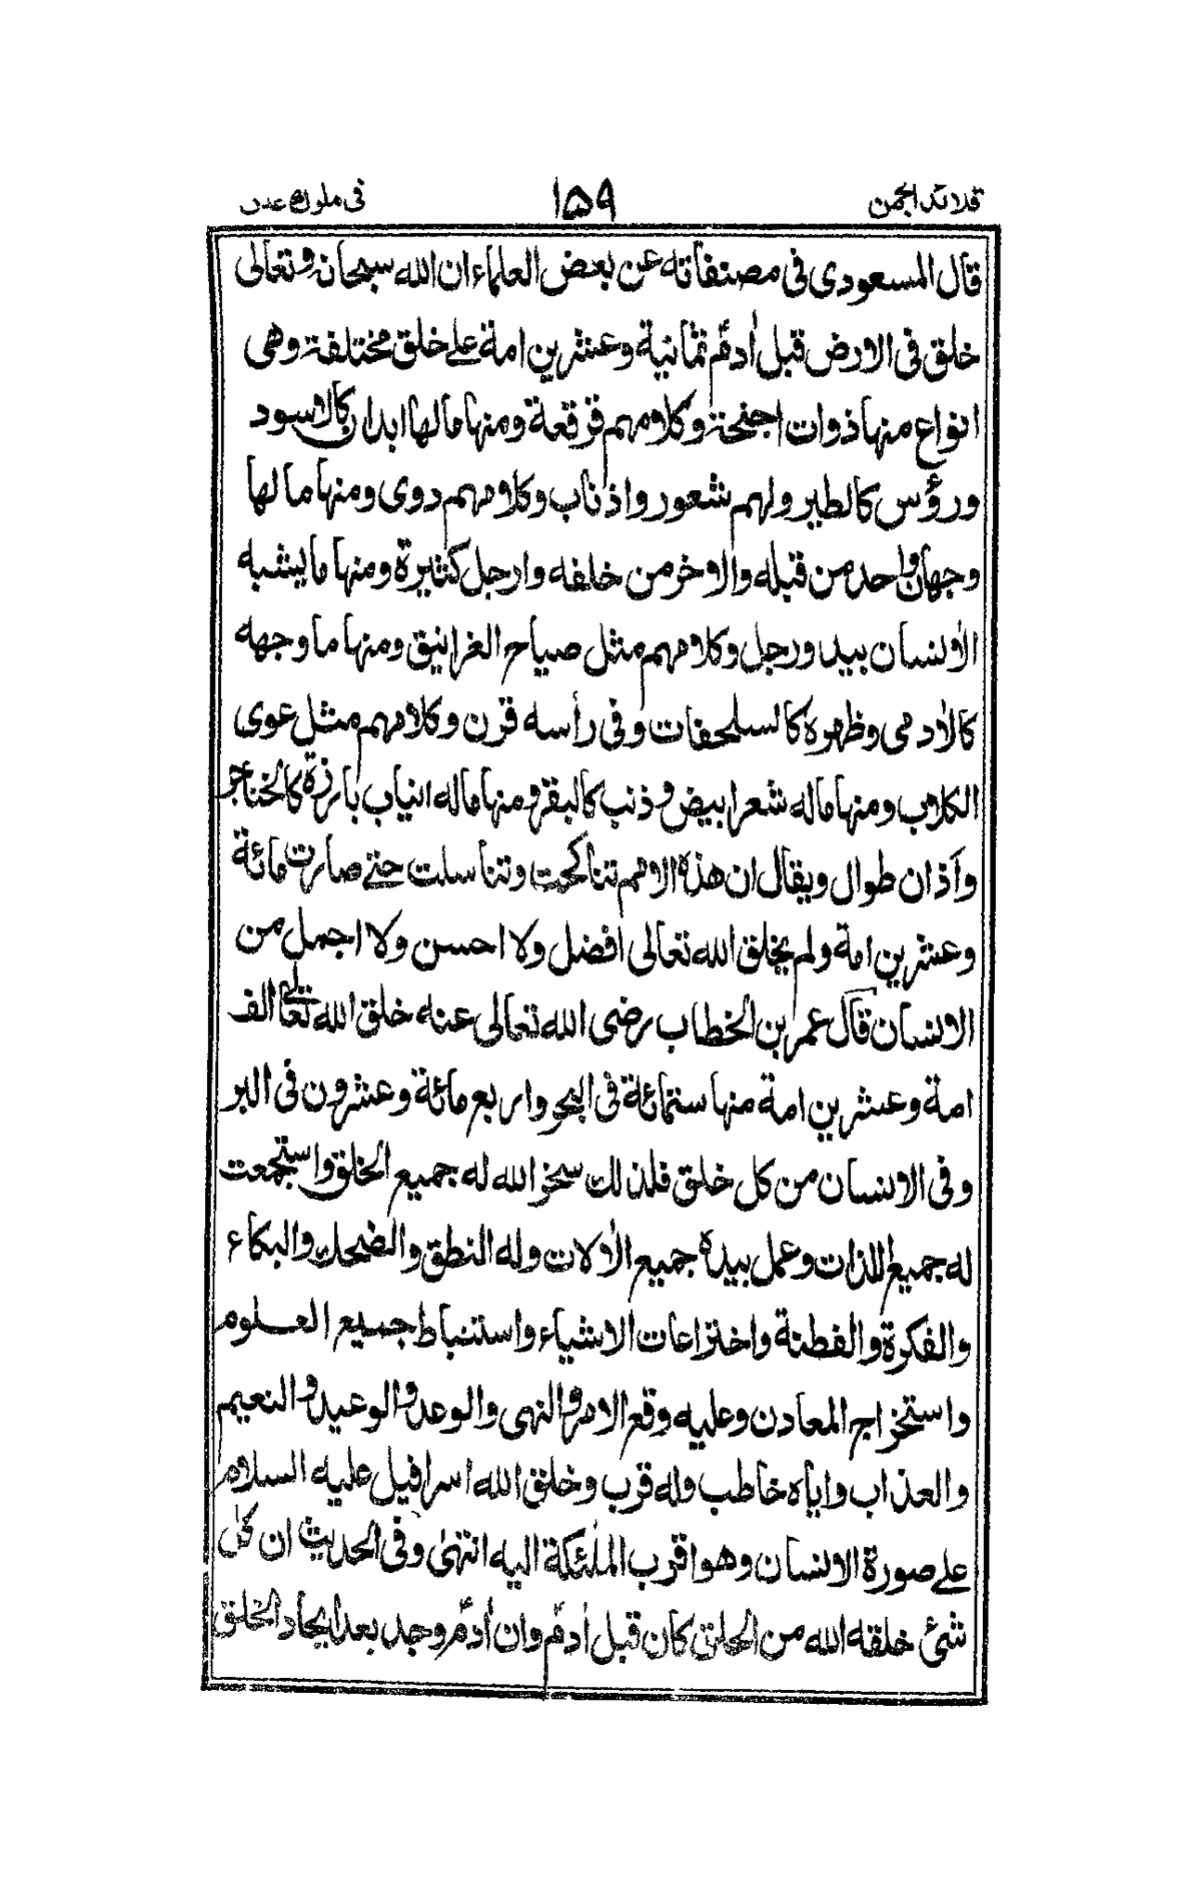 قلائد الجمن ١٥٩ فى ملوك عدن
قال المسعودى فى مصنفاته عن بعض العلماء ان الله سبحانه وتعالى
خلق فى الارض قبل أدم ثمانية وعشرين امة على خلق مختلفة وهى
انواع منها ذوات اجنحة وكلامهم قرقعة ومنها مالها ابدان كالاسود
ورؤس كالطير ولهم شعور واذناب وكلامهم دوى ومنها مالها
وجهان واحد من قبله والاخر من خلفه وارجل كثيرة ومنها ما يشبه
الانسان بيد ورجل وكلامهم مثل صياح الغرانيق ومنها ما وجهه
كالادمى وظهره كالسلحفات وفى رأسه قرن وكلامهم مثل عوى
الكلاب ومنها ماله شعر ابيض وذنب كالبقر ومنها ماله انياب بارزة كالخناجر
وأذان طوال ويقال ان هذه الامم تناكحت وتناسلت حتى صارت مائة
وعشرين امة ولم يخلق الله تعالى افضل ولا احسن ولا اجمل من
الانسان قال عمر بن الخطاب رضى الله تعالى عنه خلق الله تعالى الف
امة وعشرين امة منها ستمائة فى البحر واربع مائة وعشرون فى البر
وفى الانسان من كل خلق فلذلك سخر الله له جميع الخلق واستجمعت
له جميع اللذات وعمل بيده جميع الألات وله النطق والضحك والبكاء
والفكرة والفطنة واختراعات الاشياء واستنباط جميع العلوم
واستخراج المعادن وعليه وقع الامر والنهى والوعد والوعيد والنعيم
والعذاب واياه خاطب وله قرب وخلق الله اسرافيل عليه السلام
على صورة الانسان وهو اقرب الملئكة اليه انتهى وفى الحديث ان كل
شئ خلقه الله من الخلق كان قبل أدم وان أدم وجد بعد ايجاد الخلق